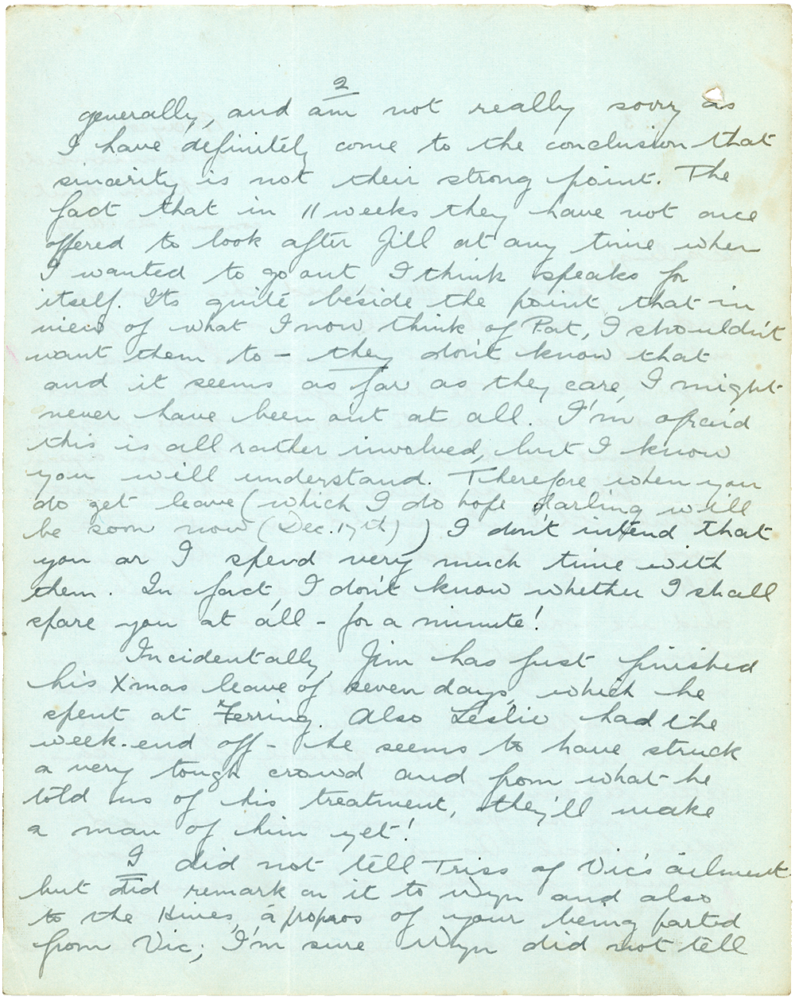 2
generally, and am not really sorry as
I have definitely come to the conclusion that
sincerity is not their strong point. The
fact that in 11 weeks they have not once
offered to look after Jill at any time when
I wanted to go out I think speaks for
itself. Its quite beside the point that in
view of what I now think of Pat, I shouldn't
want them to – they don't know that
and it seems as far as they care, I might
never have been out at all. I'm afraid
this is all rather involved, but I know
you will understand. Therefore when you
do get leave (which I do hope darling will
be soon now (Dec. 17th)) I don't intend that
you or I spend very much time with
them. In fact, I don't know whether I shall
spare you at all – for a minute!
Incidentally, Jim has just finished
his Xmas leave of seven days, which he
spent at Ferring. Also Leslie had the
week-end off – he seems to have struck
a very tough crowd and from what he
told us of his treatment, they'll make
a man of him yet!
I did not tell Triss of Vic's ailment
but did remark on it to Wyn and also
to the Hines, àpropos of your being parted
from Vic; I'm sure Wyn did not tell